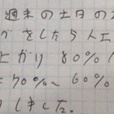 週末の土日の
をしたら人工
上がり 80%
70%〜60%
しました。